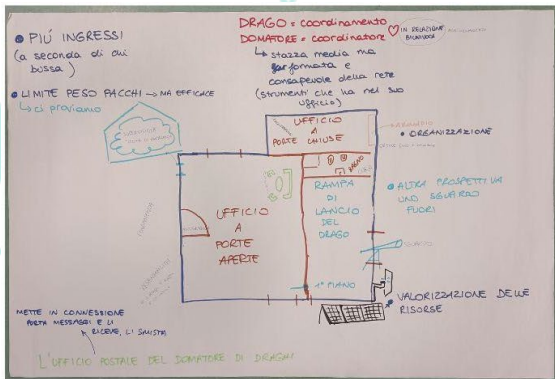 • PIÚ INGRESSI
(a seconda di chi
bussa)
• LIMITE PESO PACCHI → MA EFFICACE
↳ ci proviamo
DRAGO = coordinamento
DOMATORE = coordinatore
IN RELAZIONE
BIUNIVOCA
↳ stazza media ma
formata e
consapevole della rete
(strumenti che ha nel suo
ufficio)
UFFICIO
A
PORTE CHIUSE
• ORGANIZZAZIONE
BAGNO
RAMPA
DI
LANCIO
DEL
DRAGO
• ALTRA PROSPETTIVA
UNO SGUARDO
FUORI
UFFICIO
A
PORTE
APERTE
1° PIANO
• VALORIZZAZIONE DELLE
RISORSE
METTE IN CONNESSIONE
PORTA MESSAGGI E LI
RICEVE, LI SMISTA
L'UFFICIO POSTALE DEL DOMATORE DI DRAGHI